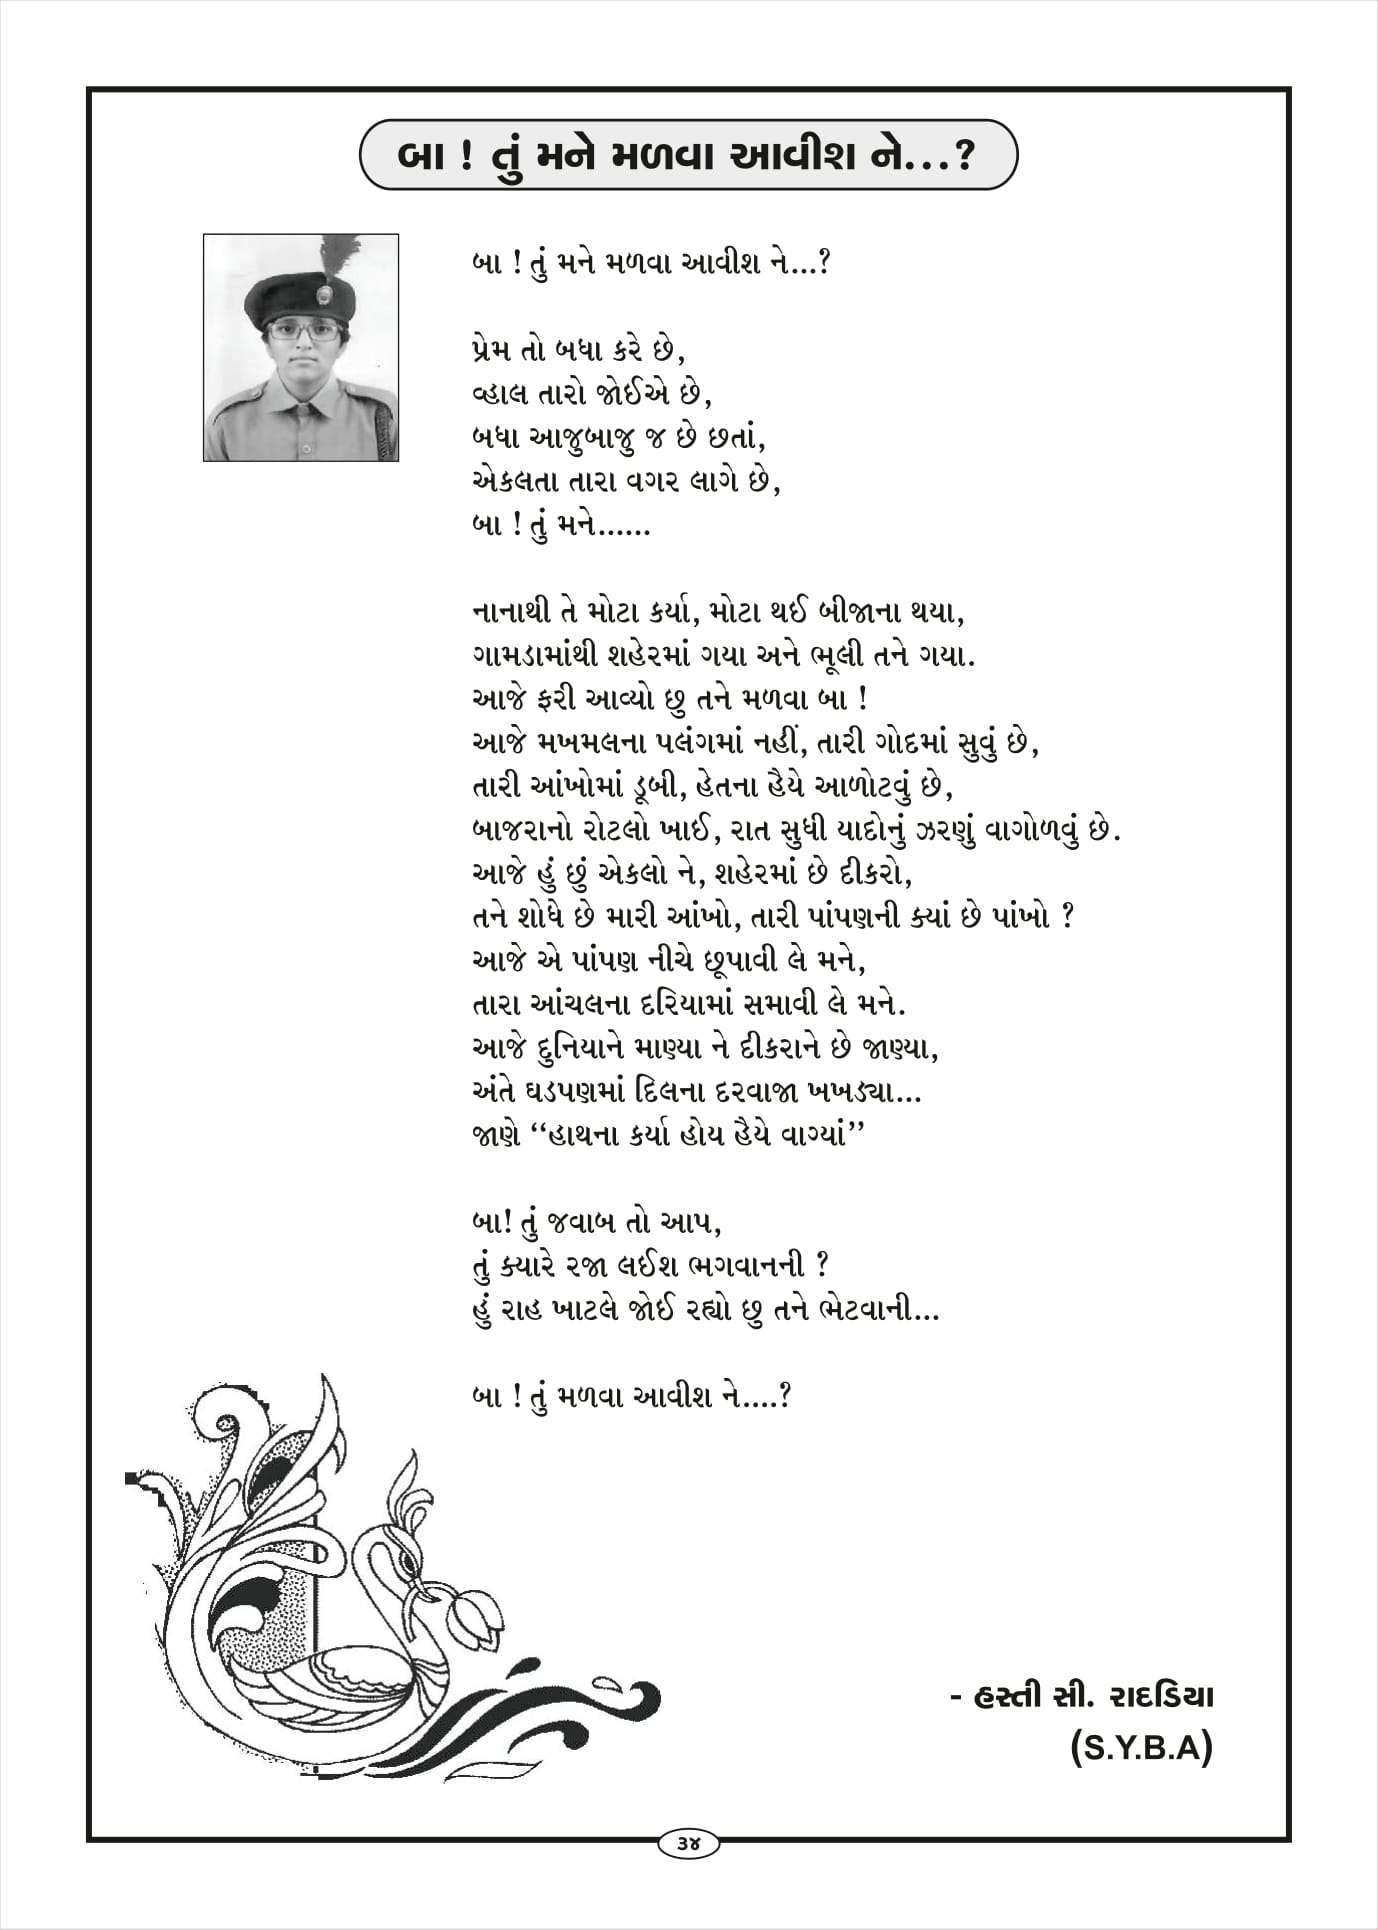 બા ! તું મને મળવા આવીશ ને...?
બા ! તું મને મળવા આવીશ ને...?
પ્રેમ તો બધા કરે છે,
વ્હાલ તારો જોઈએ છે,
બધા આજુબાજુ જ છે છતાં,
એકલતા તારા વગર લાગે છે,
બા ! તું મને......
નાનાથી તે મોટા કર્યા, મોટા થઈ બીજાના થયા,
ગામડામાંથી શહેરમાં ગયા અને ભૂલી તને ગયા.
આજે ફરી આવ્યો છુ તને મળવા બા !
આજે મખમલના પલંગમાં નહીં, તારી ગોદમાં સુવું છે,
તારી આંખોમાં ડૂબી, હેતના હૈયે આળોટવું છે,
બાજરાનો રોટલો ખાઈ, રાત સુધી યાદોનું ઝરણું વાગોળવું છે.
આજે હું છું એકલો ને, શહેરમાં છે દીકરો,
તને શોધે છે મારી આંખો, તારી પાંપણની ક્યાં છે પાંખો ?
આજે એ પાંપણ નીચે છૂપાવી લે મને,
તારા આંચલના દરિયામાં સમાવી લે મને.
આજે દુનિયાને માણ્યા ને દીકરાને છે જાણ્યા,
અંતે ઘડપણમાં દિલના દરવાજા ખખડ્યા...
જાણે “હાથના કર્યા હોય હૈયે વાગ્યાં”
બા! તું જવાબ તો આપ,
તું ક્યારે રજા લઈશ ભગવાનની ?
હું રાહ ખાટલે જોઈ રહ્યો છુ તને ભેટવાની...
બા ! તું મળવા આવીશ ને....?
- હસ્તી સી. રાદડિયા
(S.Y.B.A)
૩૪